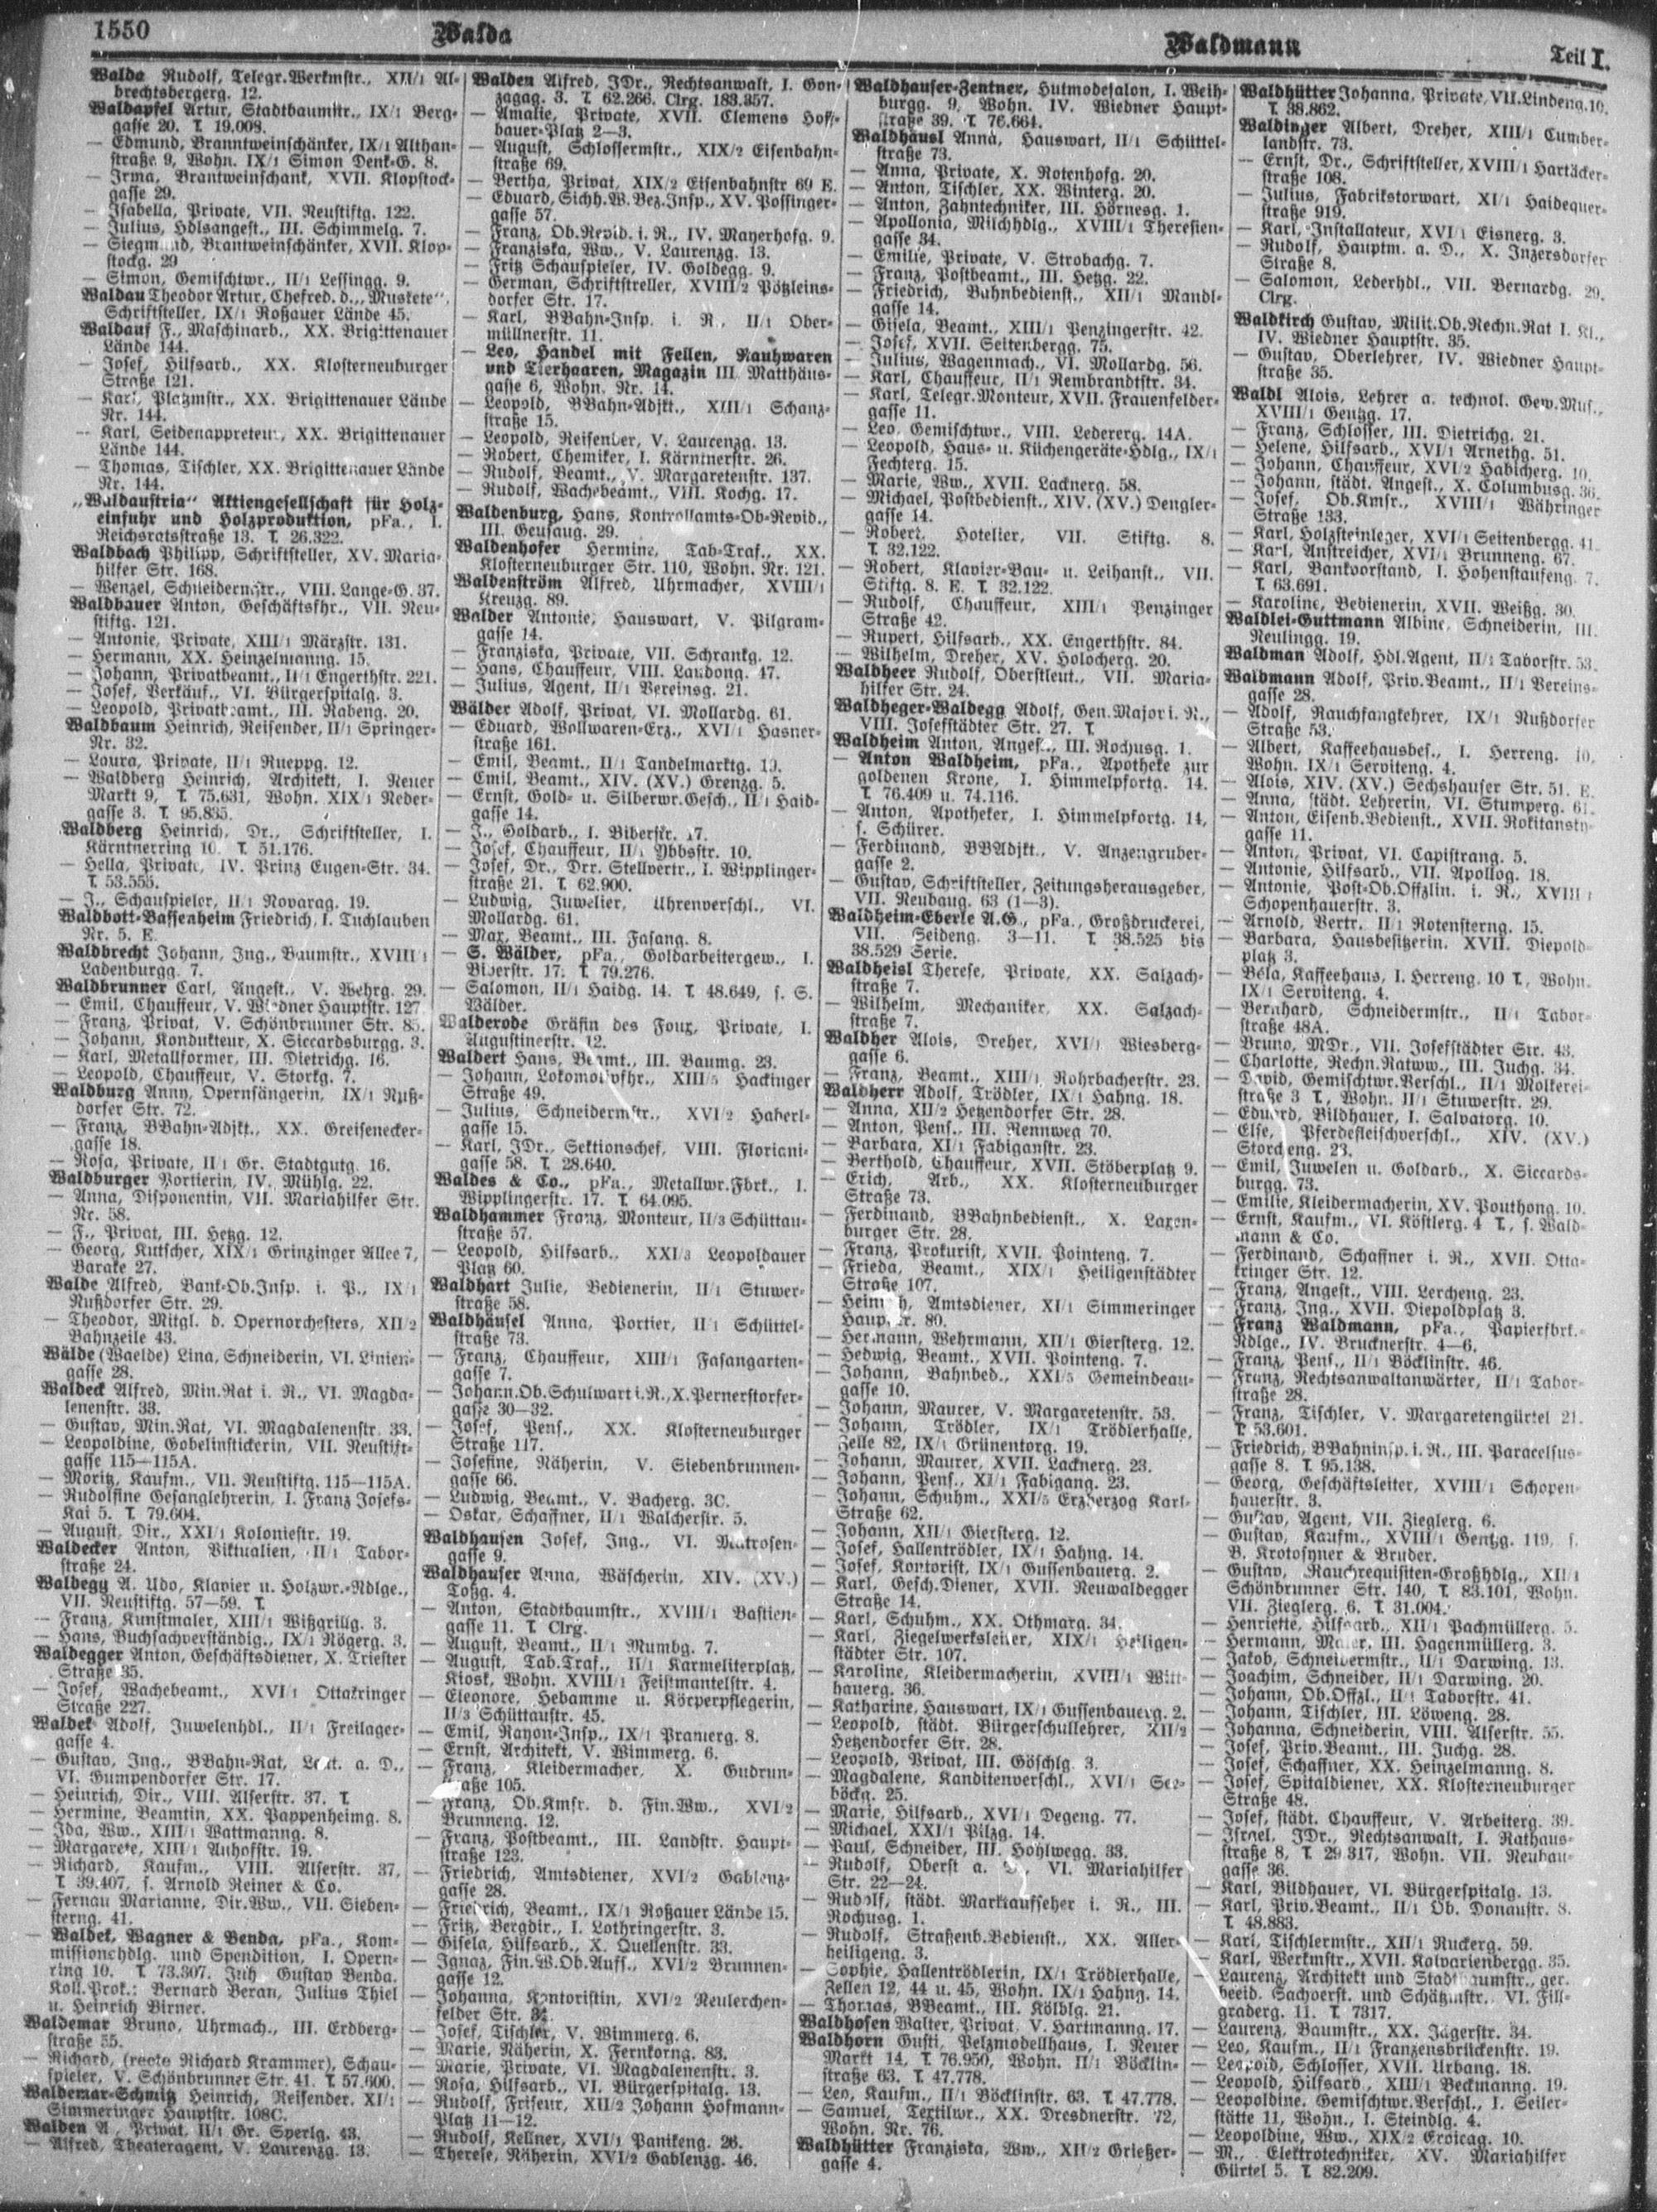 1550
Walda
Waldmann
Teil I.
Walda Rudolf, Telegr.Werkmstr., XII/1 Al-
brechtsbergerg. 12.
Waldapfel Artur, Stadtbaumstr., IX/1 Berg-
gasse 20. T. 19.008.
— Edmund, Branntweinschänker, IX/1 Althan-
straße 9, Wohn. IX/1 Simon Denk-G. 8.
— Irma, Brantweinschank, XVII. Klopstock-
gasse 29.
— Isabella, Private, VII. Neustiftg. 122.
— Julius, Hdlsangest., III. Schimmelg. 7.
— Siegmund, Brantweinschänker, XVII. Klop-
stockg. 29
— Simon, Gemischtwr., II/1 Lessingg. 9.
Waldau Theodor Artur, Chefred. d. „Muskete“,
Schriftsteller, IX/1 Roßauer Lände 45.
Waldauf F., Maschinarb., XX. Brigittenauer
Lände 144.
— Josef, Hilfsarb., XX. Klosterneuburger
Straße 121.
— Karl, Platzmstr., XX. Brigittenauer Lände
Nr. 144.
— Karl, Seidenappreteur, XX. Brigittenauer
Lände 144.
— Thomas, Tischler, XX. Brigittenauer Lände
Nr. 144.
„Waldaustria“ Aktiengesellschaft für Holz-
einfuhr und Holzproduktion, pFa., I.
Reichsratsstraße 13. T. 26.322.
Waldbach Philipp, Schriftsteller, XV. Maria-
hilfer Str. 168.
— Wenzel, Schneidermstr., VIII. Lange-G. 37.
Waldbauer Anton, Geschäftsfhr., VII. Neu-
stiftg. 121.
— Antonie, Private, XIII/1 Märzstr. 131.
— Hermann, XX. Heinzelmanng. 15.
— Johann, Privatbeamt., II/1 Engerthstr. 221.
— Josef, Verkäuf., VI. Bürgerspitalg. 3.
— Leopold, Privatbeamt., III. Rabeng. 20.
Waldbaum Heinrich, Reisender, II/1 Springer-
Nr. 32.
— Laura, Private, II/1 Rueppg. 12.
— Waldberg Heinrich, Architekt, I. Neuer
Markt 9, T. 75.631, Wohn. XIX/1 Neder-
gasse 3. T. 95.835.
Waldberg Heinrich, Dr., Schriftsteller, I.
Kärntnerring 10. T. 51.176.
— Hella, Private, IV. Prinz Eugen-Str. 34.
T. 53.555.
— J., Schauspieler, II/1 Novarag. 19.
Waldbott-Bassenheim Friedrich, I. Tuchlauben
Nr. 5. E.
Waldbrecht Johann, Ing., Baumstr., XVIII/1
Ladenburgg. 7.
Waldbrunner Carl, Angest., V. Wehrg. 29.
— Emil, Chauffeur, V. Wiedner Hauptstr. 127.
— Franz, Privat, V. Schönbrunner Str. 85.
— Johann, Kondukteur, X. Siccardsburgg. 3.
— Karl, Metallformer, III. Dietrichg. 16.
— Leopold, Chauffeur, V. Storkg. 7.
Waldburg Anny, Opernsängerin, IX/1 Nuß-
dorfer Str. 72.
— Franz, BBahn-Adjkt., XX. Greisenecker-
gasse 18.
— Rosa, Private, II/1 Gr. Stadtgutg. 16.
Waldburger Portierin, IV. Mühlg. 22.
— Anna, Disponentin, VII. Mariahilfer Str.
Nr. 58.
— F., Privat, III. Hetzg. 12.
— Georg, Kutscher, XIX/1 Grinzinger Allee 7,
Barake 27.
Walde Alfred, Bank-Ob.Insp. i. P., IX/1
Nußdorfer Str. 29.
— Theodor, Mitgl. d. Opernorchesters, XII/2
Bahnzeile 43.
Wälde (Waelde) Lina, Schneiderin, VI. Linien-
gasse 28.
Waldeck Alfred, Min.Rat i. R., VI. Magda-
lenenstr. 33.
— Gustav, Min.Rat, VI. Magdalenenstr. 33.
— Leopoldine, Gobelinstickerin, VII. Neustift-
gasse 115—115A.
— Moritz, Kaufm., VII. Neustiftg. 115—115A.
— Rudolfine Gesanglehrerin, I. Franz Josefs-
Kai 5. T. 79.604.
— August, Dir., XXI/1 Koloniestr. 19.
Waldecker Anton, Viktualien, II/1 Tabor-
straße 24.
Waldegg A. Udo, Klavier u. Holzwr.-Ndlge.,
VII. Neustiftg. 57—59. T.
— Franz, Kunstmaler, XIII/1 Wißgrillg. 3.
— Hans, Buchsachverständig., IX/1 Rögerg. 3.
Waldegger Anton, Geschäftsdiener, X. Triester
Straße 35.
— Josef, Wachebeamt., XVI/1 Ottakringer
Straße 227.
Waldek Adolf, Juwelenhdl., II/1 Freilager-
gasse 4.
— Gustav, Ing., BBahn-Rat, Leut. a. D.,
VI. Gumpendorfer Str. 17.
— Heinrich, Dir., VIII. Alserstr. 37. T.
— Hermine, Beamtin, XX. Pappenheimg. 8.
— Ida, Ww., XIII/1 Wattmanng. 8.
— Margarete, XIII/1 Auhofstr. 19.
— Richard, Kaufm., VIII. Alserstr. 37,
T. 39.407, s. Arnold Reiner & Co.
— Fernau Marianne, Dir.Ww., VII. Sieben-
sterng. 41.
— Waldek, Wagner & Benda, pFa., Kom-
missionshdlg. und Spendition, I. Opern-
ring 10. T. 73.307. Inh. Gustav Benda.
Koll.Prok.: Bernard Beran, Julius Thiel
u. Heinrich Birner.
Waldemar Bruno, Uhrmach., III. Erdberg-
straße 55.
— Richard, (recte Richard Krammer), Schau-
spieler, V. Schönbrunner Str. 41. T. 57.600.
Waldemar-Schmitz Heinrich, Reisender. XI/1
Simmeringer Hauptstr. 108C.
Walden A., Privat, II/1 Gr. Sperlg. 43.
— Alfred, Theateragent, V. Laurenzg. 13.
Walden Alfred, JDr., Rechtsanwalt, I. Gon-
zagag. 3. T. 62.266. Clrg. 183.357.
— Amalie, Private, XVII. Clemens Hof-
bauer-Platz 2—3.
— August, Schlossermstr., XIX/2 Eisenbahn-
straße 69.
— Bertha, Privat, XIX/2 Eisenbahnstr 69 E.
— Eduard, Sichh.W.Bez.Insp., XV. Possinger-
gasse 57.
— Franz, Ob.Revid. i. R., IV. Mayerhofg. 9.
— Franziska, Ww., V. Laurenzg. 13.
— Fritz Schauspieler, IV. Goldegg. 9.
— German, Schriftstreller, XVIII/2 Pötzleins-
dorfer Str. 17.
— Karl, BBahn-Insp. i. R., II/1 Ober-
müllnerstr. 11.
— Leo, Handel mit Fellen, Rauhwaren
und Tierhaaren, Magazin III. Matthäus-
gasse 6, Wohn. Nr. 14.
— Leopold, BBahn-Adjkt., XIII/1 Schanz-
straße 15.
— Leopold, Reisender, V. Laurenzg. 13.
— Robert, Chemiker, I. Kärntnerstr. 26.
— Rudolf, Beamt., V. Margaretenstr. 137.
— Rudolf, Wachebeamt., VIII. Kochg. 17.
Waldenburg, Hans, Kontrollamts-Ob-Revid.,
III. Geusaug. 29.
Waldenhofer Hermine, Tab-Traf., XX.
Klosterneuburger Str. 110, Wohn. Nr. 121.
Waldenström Alfred, Uhrmacher, XVIII/1
Kreuzg. 89.
Walder Antonie, Hauswart, V. Pilgram-
gasse 14.
— Franziska, Private, VII. Schrankg. 12.
— Hans, Chauffeur, VIII. Laudong. 47.
— Julius, Agent, II/1 Vereinsg. 21.
Wälder Adolf, Privat, VI. Mollardg. 61.
— Eduard, Wollwaren-Erz., XVI/1 Hasner-
straße 161.
— Emil, Beamt., II/1 Tandelmarktg. 19.
— Emil, Beamt., XIV. (XV.) Grenzg. 5.
— Ernst, Gold- u. Silberwr.Gesch., II/1 Haid-
gasse 14.
— J., Goldarb., I. Biberstr. 17.
— Josef, Chauffeur, II/1 Ybbsstr. 10.
— Josef, Dr., Drr. Stellvertr., I. Wipplinger-
straße 21. T. 62.900.
— Ludwig, Juwelier, Uhrenverschl., VI.
Mollardg. 61.
— Max, Beamt., III. Fasang. 8.
— S. Wälder, pFa., Goldarbeitergew., I.
Biberstr. 17. T. 79.276.
— Salomon, II/1 Haidg. 14. T. 48.649, s. S.
Wälder.
Walderode Gräfin des Foux, Private, I.
Augustinerstr. 12.
Waldert Hans, Beamt., III. Baumg. 23.
— Johann, Lokomotivfhr., XIII/5 Hackinger
Straße 49.
— Julius, Schneidermstr., XVI/2 Haberl-
gasse 15.
— Karl, JDr., Sektionschef, VIII. Floriani-
gasse 58. T. 28.640.
Waldes & Co., pFa., Metallwr.Fbrk., I.
Wipplingerstr. 17. T. 64.095.
Waldhammer Franz, Monteur, II/3 Schüttau-
straße 57.
— Leopold, Hilfsarb., XXI/3 Leopoldauer
Platz 60.
Waldhart Julie, Bedienerin, II/1 Stuwer-
straße 58.
Waldhäusel Anna, Portier, II/1 Schüttel-
straße 73.
— Franz, Chauffeur, XIII/1 Fasangarten-
gasse 7.
— Johann.Ob.Schulwart i.R., X. Pernerstorfer-
gasse 30—32.
— Josef, Pens., XX. Klosterneuburger
Straße 117.
— Josefine, Näherin, V. Siebenbrunnen-
gasse 66.
— Ludwig, Beamt., V. Bacherg. 3C.
— Oskar, Schaffner, II/1 Walcherstr. 5.
Waldhausen Josef, Ing., VI. Matrosen-
gasse 9.
Waldhauser Anna, Wäscherin, XIV. (XV.)
Toßg. 4.
— Anton, Stadtbaumstr., XVIII/1 Bastien-
gasse 11. T. Clrg.
— August, Beamt., II/1 Mumbg. 7.
— August, Tab.Traf., II/1 Karmeliterplatz,
Kiosk, Wohn. XVIII/1 Feistmantelstr. 4.
— Eleonore, Hebamme u. Körperpflegerin,
II/3 Schüttaustr. 45.
— Emil, Rayon-Insp., IX/1 Pramerg. 8.
— Ernst, Architekt, V. Wimmerg. 6.
— Franz, Kleidermacher, X. Gudrun-
straße 105.
— Franz, Ob.Kmsr. d. Fin.Ww., XVI/2
Brunneng. 12.
— Franz, Postbeamt., III. Landstr. Haupt-
straße 123.
— Friedrich, Amtsdiener, XVI/2 Gablenz-
gasse 28.
— Friedrich, Beamt., IX/1 Roßauer Lände 15.
— Fritz, Bergdir., I. Lothringerstr. 3.
— Gisela, Hilfsarb., X. Quellenstr. 33.
— Ignaz, Fin.W.Ob.Auff., XVI/2 Brunnen-
gasse 12.
— Johanna, Kontoristin, XVI/2 Neulerchen-
felder Str.
— Josef, Tischler, V. Wimmerg. 6.
— Marie, Näherin, X. Fernkorng. 83.
— Marie, Private, VI. Magdalenenstr. 3.
— Rosa, Hilfsarb., VI. Bürgerspitalg. 13.
— Rudolf, Friseur, XII/2 Johann Hofmann-
Platz 11—12.
— Rudolf, Kellner, XVI/1 Panikeng. 26.
— Therese, Näherin, XVI/2 Gablenzg. 46.
Waldhauser-Zentner, Hutmodesalon, I. Weih-
burgg. 9, Wohn. IV. Wiedner Haupt-
straße 39. T. 76.664.
Waldhäusl Anna, Hauswart, II/1 Schüttel-
straße 73.
— Anna, Private, X. Rotenhofg. 20.
— Anton, Tischler, XX. Winterg. 20.
— Anton, Zahntechniker, III. Hörnesg. 1.
— Apollonia, Milchhdlg., XVIII/1 Theresien-
gasse 34.
— Emilie, Private, V. Strobachg. 7.
— Franz, Postbeamt., III. Hetzg. 22.
— Friedrich, Bahnbedienst., XII/1 Mandl-
gasse 14.
— Gisela, Beamt., XIII/1 Penzingerstr. 42.
— Josef, XVII. Seitenbergg. 75.
— Julius, Wagenmach., VI. Mollardg. 56.
— Karl, Chauffeur, II/1 Rembrandtstr. 34.
— Karl, Telegr.Monteur, XVII. Frauenfelder-
gasse 11.
— Leo, Gemischtwr., VIII. Ledererg. 14A.
— Leopold, Haus- u. Küchengeräte-Hdlg., IX/1
Fechterg. 15.
— Marie, Ww., XVII. Lacknerg. 58.
— Michael, Postbedienst., XIV. (XV.) Dengler-
gasse 14.
— Robert, Hotelier, VII. Stiftg. 8.
T. 32.122.
— Robert, Klavier-Bau- u. Leihanst., VII.
Stiftg. 8. E. T. 32.122.
— Rudolf, Chauffeur, XIII/1 Penzinger
Straße 42.
— Rupert, Hilfsarb., XX. Engerthstr. 84.
— Wilhelm, Dreher, XV. Holocherg. 20.
Waldheer Rudolf, Oberstleut., VII. Maria-
hilfer Str. 24.
Waldheger-Waldegg Adolf, Gen.Major i. R.,
VIII. Josefstädter Str. 27. T.
Waldheim Anton, Angest., III. Rochusg. 1.
— Anton Waldheim, pFa., Apotheke zur
goldenen Krone, I. Himmelpfortg. 14.
T. 76.409 u. 74.116.
— Anton, Apotheker, I. Himmelpfortg. 14,
s. Schürer.
— Ferdinand, BBAdjkt., V. Anzengruber-
gasse 2.
— Gustav, Schriftsteller, Zeitungsherausgeber,
VII. Neubaug. 63 (1—3).
Waldheim-Eberle A.G., pFa., Großdruckerei,
VII. Seideng. 3—11. T. 38.525 bis
38.529 Serie.
Waldheisl Therese, Private, XX. Salzach-
straße 7.
— Wilhelm, Mechaniker, XX. Salzach-
straße 7.
Waldher Alois, Dreher, XVI/1 Wiesberg-
gasse 6.
— Franz, Beamt., XIII/1 Rohrbacherstr. 23.
Waldherr Adolf, Trödler, IX/1 Hahng. 18.
— Anna, XII/2 Hetzendorfer Str. 28.
— Anton, Pens., III. Rennweg 70.
— Barbara, XI/1 Fabiganstr. 23.
— Berthold, Chauffeur, XVII. Stöberplatz 9.
— Erich, Arb., XX. Klosterneuburger
Straße 73.
— Ferdinand, BBahnbedienst., X. Laxen-
burger Str. 28.
— Franz, Prokurist, XVII. Pointeng. 7.
— Frieda, Beamt., XIX/1 Heiligenstädter
Straße 107.
— Heinrich, Amtsdiener, XI/1 Simmeringer
Hauptstr. 80.
— Hermann, Wehrmann, XII/1 Giersterg. 12.
— Hedwig, Beamt., XVII. Pointeng. 7.
— Johann, Bahnbed., XXI/5 Gemeindeau-
gasse 10.
— Johann, Maurer, V. Margaretenstr. 53.
— Johann, Trödler, IX/1 Trödlerhalle,
Zelle 82, IX/1 Grünentorg. 19.
— Johann, Maurer, XVII. Lacknerg. 23.
— Johann, Pens., XI/1 Fabigang. 23.
— Johann, Schuhm., XXI/5 Erzherzog Karl-
Straße 62.
— Johann, XII/1 Giersterg. 12.
— Josef, Hallentrödler, IX/1 Hahng. 14.
— Josef, Kontorist, IX/1 Gussenbauerg. 2.
— Karl, Gesch.Diener, XVII. Neuwaldegger
Straße 14.
— Karl, Schuhm., XX. Othmarg. 34.
— Karl, Ziegelwerksleiter, XIX/1 Heiligen-
städter Str. 107.
— Karoline, Kleidermacherin, XVIII/1 Witt-
hauerg. 36.
— Katharine, Hauswart, IX/1 Gussenbauerg. 2.
— Leopold, städt. Bürgerschullehrer, XII/2
Hetzendorfer Str. 28.
— Leopold, Privat, III. Göschlg. 3.
— Magdalene, Kanditenverschl., XVI/1 See-
böckg. 25.
— Marie, Hilfsarb., XVI/1 Degeng. 77.
— Michael, XXI/1 Pilzg. 14.
— Paul, Schneider, III. Hohlwegg. 33.
— Rudolf, Oberst a. D., VI. Mariahilfer
Str. 22—24.
— Rudolf, städt. Marktaufseher i. R., III.
Rochusg. 1.
— Rudolf, Straßenb.Bedienst., XX. Aller-
heiligeng. 3.
— Sophie, Hallentrödlerin, IX/1 Trödlerhalle,
Zellen 12, 44 u. 45, Wohn. IX/1 Hahng. 14.
— Thomas, BBeamt., III. Kölblg. 21.
Waldhofen Walter, Privat, V. Hartmanng. 17.
Waldhorn Gusti, Pelzmodellhaus, I. Neuer
Markt 14, T. 76.950, Wohn. II/1 Böcklin-
straße 63. T. 47.778.
— Leo, Kaufm., II/1 Böcklinstr. 63. T. 47.778.
— Samuel, Textilwr., XX. Dresdnerstr. 72,
Wohn. Nr. 76.
Waldhütter Franziska, Ww., XII/2 Grießer-
gasse 4.
Waldhütter Johanna, Private, VII. Lindeng. 10.
T. 38.862.
Waldinger Albert, Dreher, XIII/1 Cumber-
landstr. 73.
— Ernst, Dr., Schriftsteller, XVIII/1 Hartäcker-
straße 108.
— Julius, Fabrikstorwart, XI/1 Haidequer-
straße 919.
— Karl, Installateur, XVI/1 Eisnerg. 3.
— Rudolf, Hauptm. a. D., X. Inzersdorfer
Straße 8.
— Salomon, Lederhdl., VII. Bernardg. 29.
Clrg.
Waldkirch Gustav, Milit.Ob.Rechn.Rat I. Kl.,
IV. Wiedner Hauptstr. 35.
— Gustav, Oberlehrer, IV. Wiedner Haupt-
straße 35.
Waldl Alois, Lehrer a. technol. Gew.Mus.,
XVIII/1 Gentzg. 17.
— Franz, Schlosser, III. Dietrichg. 21.
— Helene, Hilfsarb., XVI/1 Arnethg. 51.
— Johann, Chauffeur, XVI/2 Habicherg. 10.
— Johann, städt. Angest., X. Columbusg. 36.
— Josef, Ob.Kmsr., XVIII/1 Währinger
Straße 133.
— Karl, Holzsteinleger, XVI/1 Seitenbergg. 41.
— Karl, Anstreicher, XVI/1 Brunneng. 67.
— Karl, Bankvorstand, I. Hohenstaufeng. 7.
T. 63.691.
— Karoline, Bedienerin, XVII. Weißg. 30.
Waldlei-Guttmann Albine, Schneiderin, III.
Neulingg. 19.
Waldman Adolf, Hdl.Agent, II/1 Taborstr. 53.
Waldmann Adolf, Priv.Beamt., II/1 Vereins-
gasse 28.
— Adolf, Rauchfangkehrer, IX/1 Nußdorfer
Straße 53.
— Albert, Kaffeehausbes., I. Herreng. 10,
Wohn. IX/1 Serviteng. 4.
— Alois, XIV. (XV.) Sechshauser Str. 51. E.
— Anna, städt. Lehrerin, VI. Stumperg. 61.
— Anton, Eisenb.Bedienst., XVII. Rokitansky-
gasse 11.
— Anton, Privat, VI. Capistrang. 5.
— Antonie, Hilfsarb., VII. Apollog. 18.
— Antonie, Post-Ob.Offzlin. i. R., XVIII/1
Schopenhauerstr. 3.
— Arnold, Vertr. II/1 Rotensterng. 15.
— Barbara, Hausbesitzerin. XVII. Diepold-
platz 3.
— Bela, Kaffeehaus, I. Herreng. 10 T., Wohn.
IX/1 Serviteng. 4.
— Bernhard, Schneidermstr., II/1 Tabor-
straße 48A.
— Bruno, MDr., VII. Josefstädter Str. 43.
— Charlotte, Rechn.Ratww., III. Juchg. 34.
— David, Gemischtwr.Verschl., II/1 Molkerei-
straße 3 T., Wohn. II/1 Stuwerstr. 29.
— Eduard, Bildhauer, I. Salvatorg. 10.
— Else, Pferdefleischverschl., XIV. (XV.)
Storcheng. 23.
— Emil, Juwelen u. Goldarb., X. Siccards-
burgg. 73.
— Emilie, Kleidermacherin, XV. Pouthong. 10.
— Ernst, Kaufm., VI. Köstlerg. 4 T., s. Wald-
mann & Co.
— Ferdinand, Schaffner i. R., XVII. Otta-
kringer Str. 12.
— Franz, Angest., VIII. Lercheng. 23.
— Franz, Ing., XVII. Diepoldplatz 3.
— Franz Waldmann, pFa., Papierfbrk.-
Ndlge., IV. Brucknerstr. 4—6.
— Franz, Pens., II/1 Böcklinstr. 46.
— Franz, Rechtsanwaltanwärter, II/1 Tabor-
straße 28.
— Franz, Tischler, V. Margaretengürtel 21.
T. 53.601.
— Friedrich, BBahninsp. i. R., III. Paracelsus-
gasse 8. T. 95.138.
— Georg, Geschäftsleiter, XVIII/1 Schopen-
hauerstr. 3.
— Gustav, Agent, VII. Zieglerg. 6.
— Gustav, Kaufm., XVIII/1 Gentzg. 119, s.
B. Krotosyner & Bruder.
— Gustav, Rauchrequisiten-Großhdlg., XII/1
Schönbrunner Str. 140, T. 83.101, Wohn.
VII. Zieglerg. 6. T. 31.004.
— Henriette, Hilfsarb., XII/1 Pachmüllerg. 5.
— Hermann, Maler, III. Hagenmüllerg. 3.
— Jakob, Schneidermstr., II/1 Darwing. 13.
— Joachim, Schneider, II/1 Darwing. 20.
— Johann, Ob.Offzl., II/1 Taborstr. 41.
— Johann, Tischler, III. Löweng. 28.
— Johanna, Schneiderin, VIII. Alserstr. 55.
— Josef, Priv.Beamt., III. Juchg. 28.
— Josef, Schaffner, XX. Heinzelmanng. 8.
— Josef, Spitaldiener, XX. Klosterneuburger
Straße 48.
— Josef, städt. Chauffeur, V. Arbeiterg. 39.
— Israel, JDr., Rechtsanwalt, I. Rathaus-
straße 8, T. 29.317, Wohn. VII. Neubau-
gasse 36.
— Karl, Bildhauer, VI. Bürgerspitalg. 13.
— Karl, Priv.Beamt., II/1 Ob. Donaustr. 8.
T. 48.883.
— Karl, Tischlermstr., XII/1 Ruckerg. 59.
— Karl, Werkmstr., XVII. Kalvarienbergg. 35.
— Laurenz, Architekt und Stadtbaumstr., ger.
beeid. Sachverst. und Schätzmstr. VI. Fill-
graderg. 11. T. 7317.
— Laurenz, Baumstr., XX. Jägerstr. 34.
— Leo, Kaufm., II/1 Franzensbrückenstr. 19.
— Leopold, Schlosser, XVII. Urbang. 18.
— Leopold, Hilfsarb., XIII/1 Beckmanng. 19.
— Leopoldine. Gemischtwr.Verschl., I. Seiler-
stätte 11, Wohn., I. Steindlg. 4.
— Leopoldine, Ww., XIX/2 Eroicag. 10.
— M., Elektrotechniker, XV. Mariahilfer
Gürtel 5. T. 82.209.